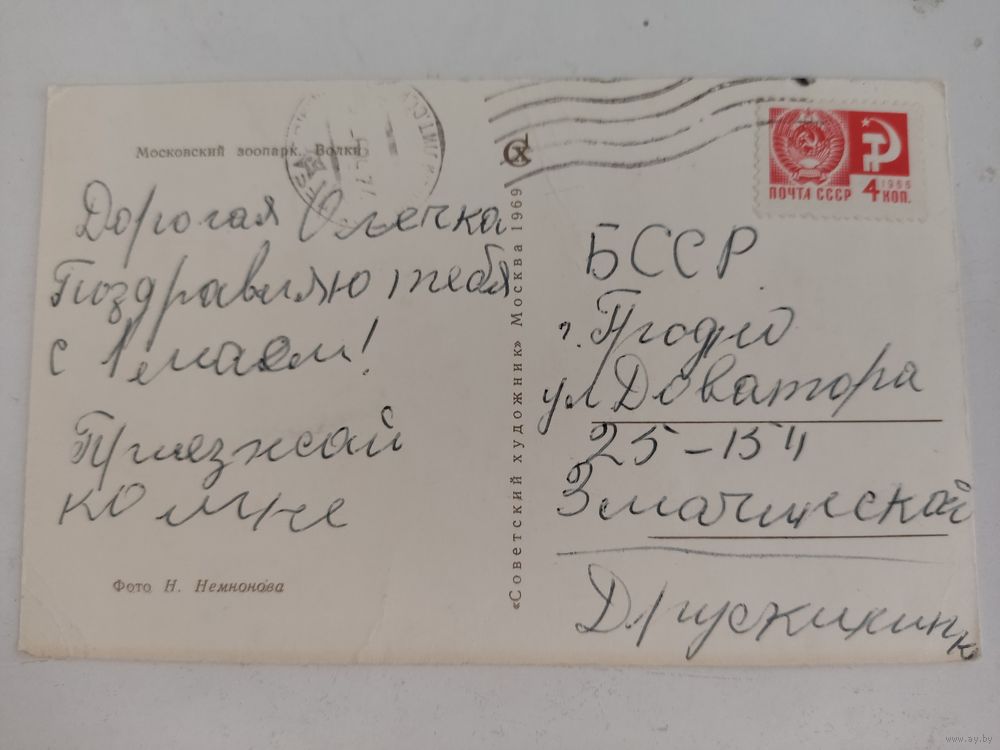 Московский зоопарк. Волки
Дорогая Олечка
Поздравляю тебя
с 1 маем!
Приезжай
ко мне
Фото Н. Немнонова
«Советский художник» Москва 1969
ПОЧТА СССР
1966
4 КОП.
БССР
г. Гродно
ул Доватора
25-154
www.ay.by